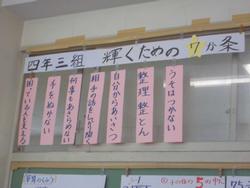 四年三組 輝くための 7か条
うそはつかない
整理整とん
自分からあいさつ
相手の話をしっかり聞く
何事もあきらめない
手をぬかない
困っている人を支える